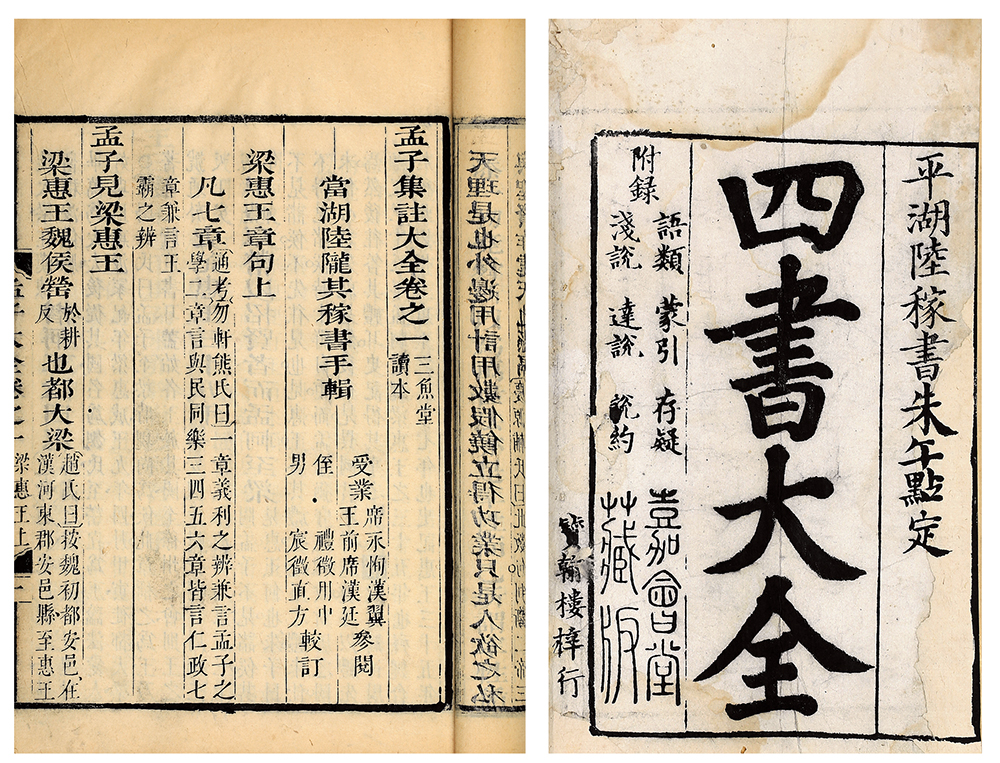 平湖陸稼書先生點定
四書大全
附録
語類 蒙引 存疑
淺說 達說 說約
嘉會堂
藏板
寶翰樓梓行
天理是也外邊用計用數假饒立得功業只是人欲之私
孟子集註大全卷之一
三魚堂
讀本
當湖陸隴其稼書手輯
受業
席永恂漢翼
王前席漢廷
參閱
侄 禮徵用中
男 宸徵直方
較訂
梁惠王章句上
凡七章
通考勿軒熊氏曰一章義利之辨兼言孟子之
學二章言與民同樂三四五六章皆言仁政七
章兼言王
霸之辨
孟子見梁惠王
梁惠王魏侯罃
於耕
反
也都大梁
趙氏曰按魏初都安邑在
漢河東郡安邑縣至惠王
孟子大全卷之一 梁惠王上 一